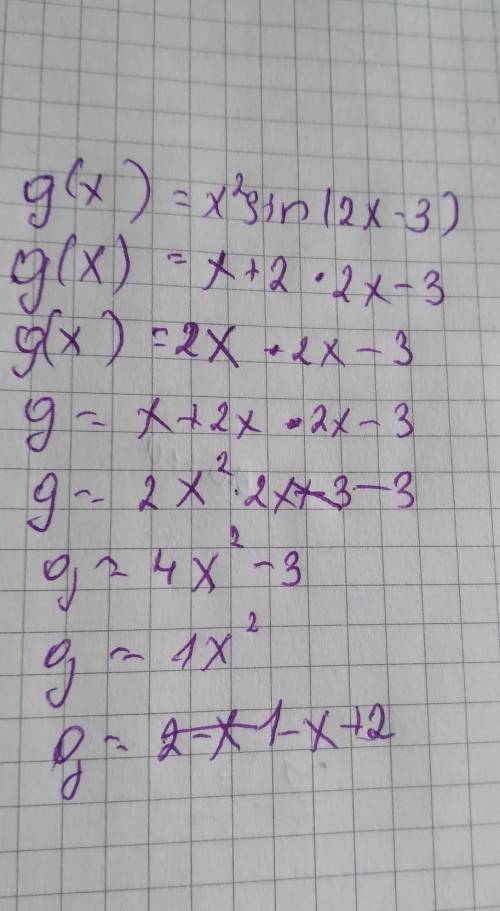 g(x) = x²sin(2x-3)
g(x) = x+2 · 2x-3
g(x) = 2x · 2x-3
g = x+2x · 2x-3
g = 2x² · 2x+3-3
g = 4x²-3
g = 1x²
g = 2-x 1-x+2